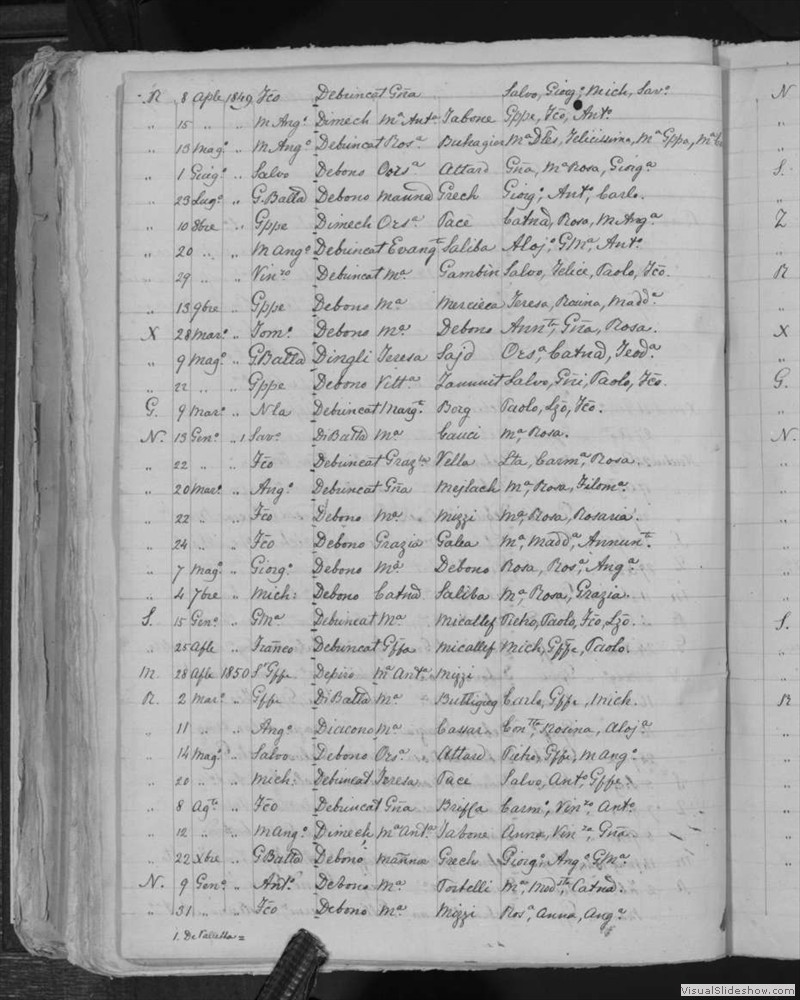 R 8 Aple 1849 Fco Debuncat Gña Salvo, Giorg.o Mich, Sav.o
„ 15 „ „ M Ang.o Dimech M.a Ant.a Tabone Gppe, Fco, Ant.o
„ 13 Mag.o „ M Ang.o Debuncat Ros.a Buhagiar M.a Felicissima, M.a Gppa,
„ 1 Giug.o „ Salvo Debono Ors.a Attard Gña, M.a Rosa, Giorg.a
„ 23 Lug.o „ G. Batta Debono Manna Grech Giorg.o, Ant.o, Carlo.
„ 10 8bre „ Gppe Dimech Ors.a Pace Catna, Rosa, M Ang.a
„ 20 „ „ M Ang.o Debuncat Evang.ta Saliba Aloj.o, G M.a, Ant.o
„ 29 „ „ Vin.zo Debuncat M.a Gambin Salvo, Felice, Paolo, Fco.
„ 13 9bre „ Gppe Debono M.a Mercieca Teresa, Madd.a
X 28 Mar.o „ Tom.o Debono M.a Debono Ann.ta, Gña, Rosa.
„ 9 Mag.o „ G. Batta Dingli Teresa Sajd Ors.a, Catna, Teod.a
„ 22 „ „ Gppe Debono Vitt.a Zammit Salvo, Gñi, Paolo, Fco.
G. 9 Mar.o „ Nla Debuncat Marg.ta Borg Paolo, Lzo, Fco.
N. 13 Gen.o „ 1 Sav.o DiBatta M.a Cauci M.a, Rosa.
„ 22 „ „ Fco Debuncat Graz.la Vella Lta, Carm.a, Rosa.
„ 20 Mar.o „ Ang.o Debuncat Gña Mejlach M.a, Rosa, Filom.a
„ 22 „ „ Fco Debono M.a Mizzi M.a, Rosa, Rosaria.
„ 24 „ „ Fco Debono Grazia Galea M.a, Madd.a, Annun.ta
„ 7 Mag.o „ Giorg.o Debono M.a Debono Rosa, Ros.a, Ang.a
„ 4 7bre „ Mich: Debono Catna Saliba M.a, Rosa, Grazia.
S. 15 Gen.o „ G M.a Debuncat M.a Micallef Pietro, Paolo, Fco, Lzo.
„ 25 Aple „ Franco Debuncat Gffa Micallef Mich, Gffe, Paolo.
M. 28 Aple 1850 S.r Gffe Depiro M.a Ant.a Mizzi
R. 2 Mar.o „ Gffe DiBatta M.a Buttigieg Carlo, Gffe, Mich.
„ 11 „ „ Ang.o Diacono M.a Cassar Con.tta, Rosina, Aloj.a
„ 14 Mag.o „ Salvo Debono Ors.a Attard Pietro, Gffe, M Ang.o
„ 20 „ „ Mich: Debuncat Teresa Pace Salvo, Ant.o, Gffe.
„ 8 Ag.to „ Fco Debuncat Gña Briffa Carm.o, Vin.zo, Ant.o
„ 12 „ „ M Ang.o Dimech M.a Ant.a Tabone Anna, Vin.za, Gña.
„ 22 Xbre „ G Batta Debono Manna Grech Giorg.o, Ang.o, G M.a
N. 9 Gen.o „ Ant.o Debono M.a Torbelli M.a, Catna.
„ 31 „ „ Fco Debono M.a Mizzi Ros.a, Anna, Ang.a
1. DeValletta =
N
„
„
S.
„
Z
„
R
„
X
„
G.
„
N.
„
S.
R
VisualSlideshow.com